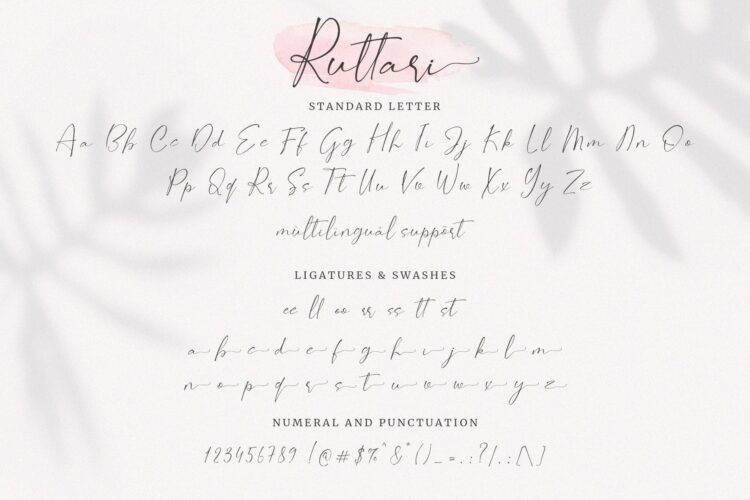 Ruttari
STANDARD LETTER
Aa Bb Cc Dd Ee Ff Gg Hh Ii Jj Kk Ll Mm Nn Oo
Pp Qq Rr Ss Tt Uu Vv Ww Xx Yy Zz
mùltilinguál suppõrt
LIGATURES & SWASHES
ee ll oo rr ss tt st
a b c d e f g h i j k l m
n o p q r s t u v w x y z
NUMERAL AND PUNCTUATION
123456789 !@#$%^&*()_=.:?/,.;[\]